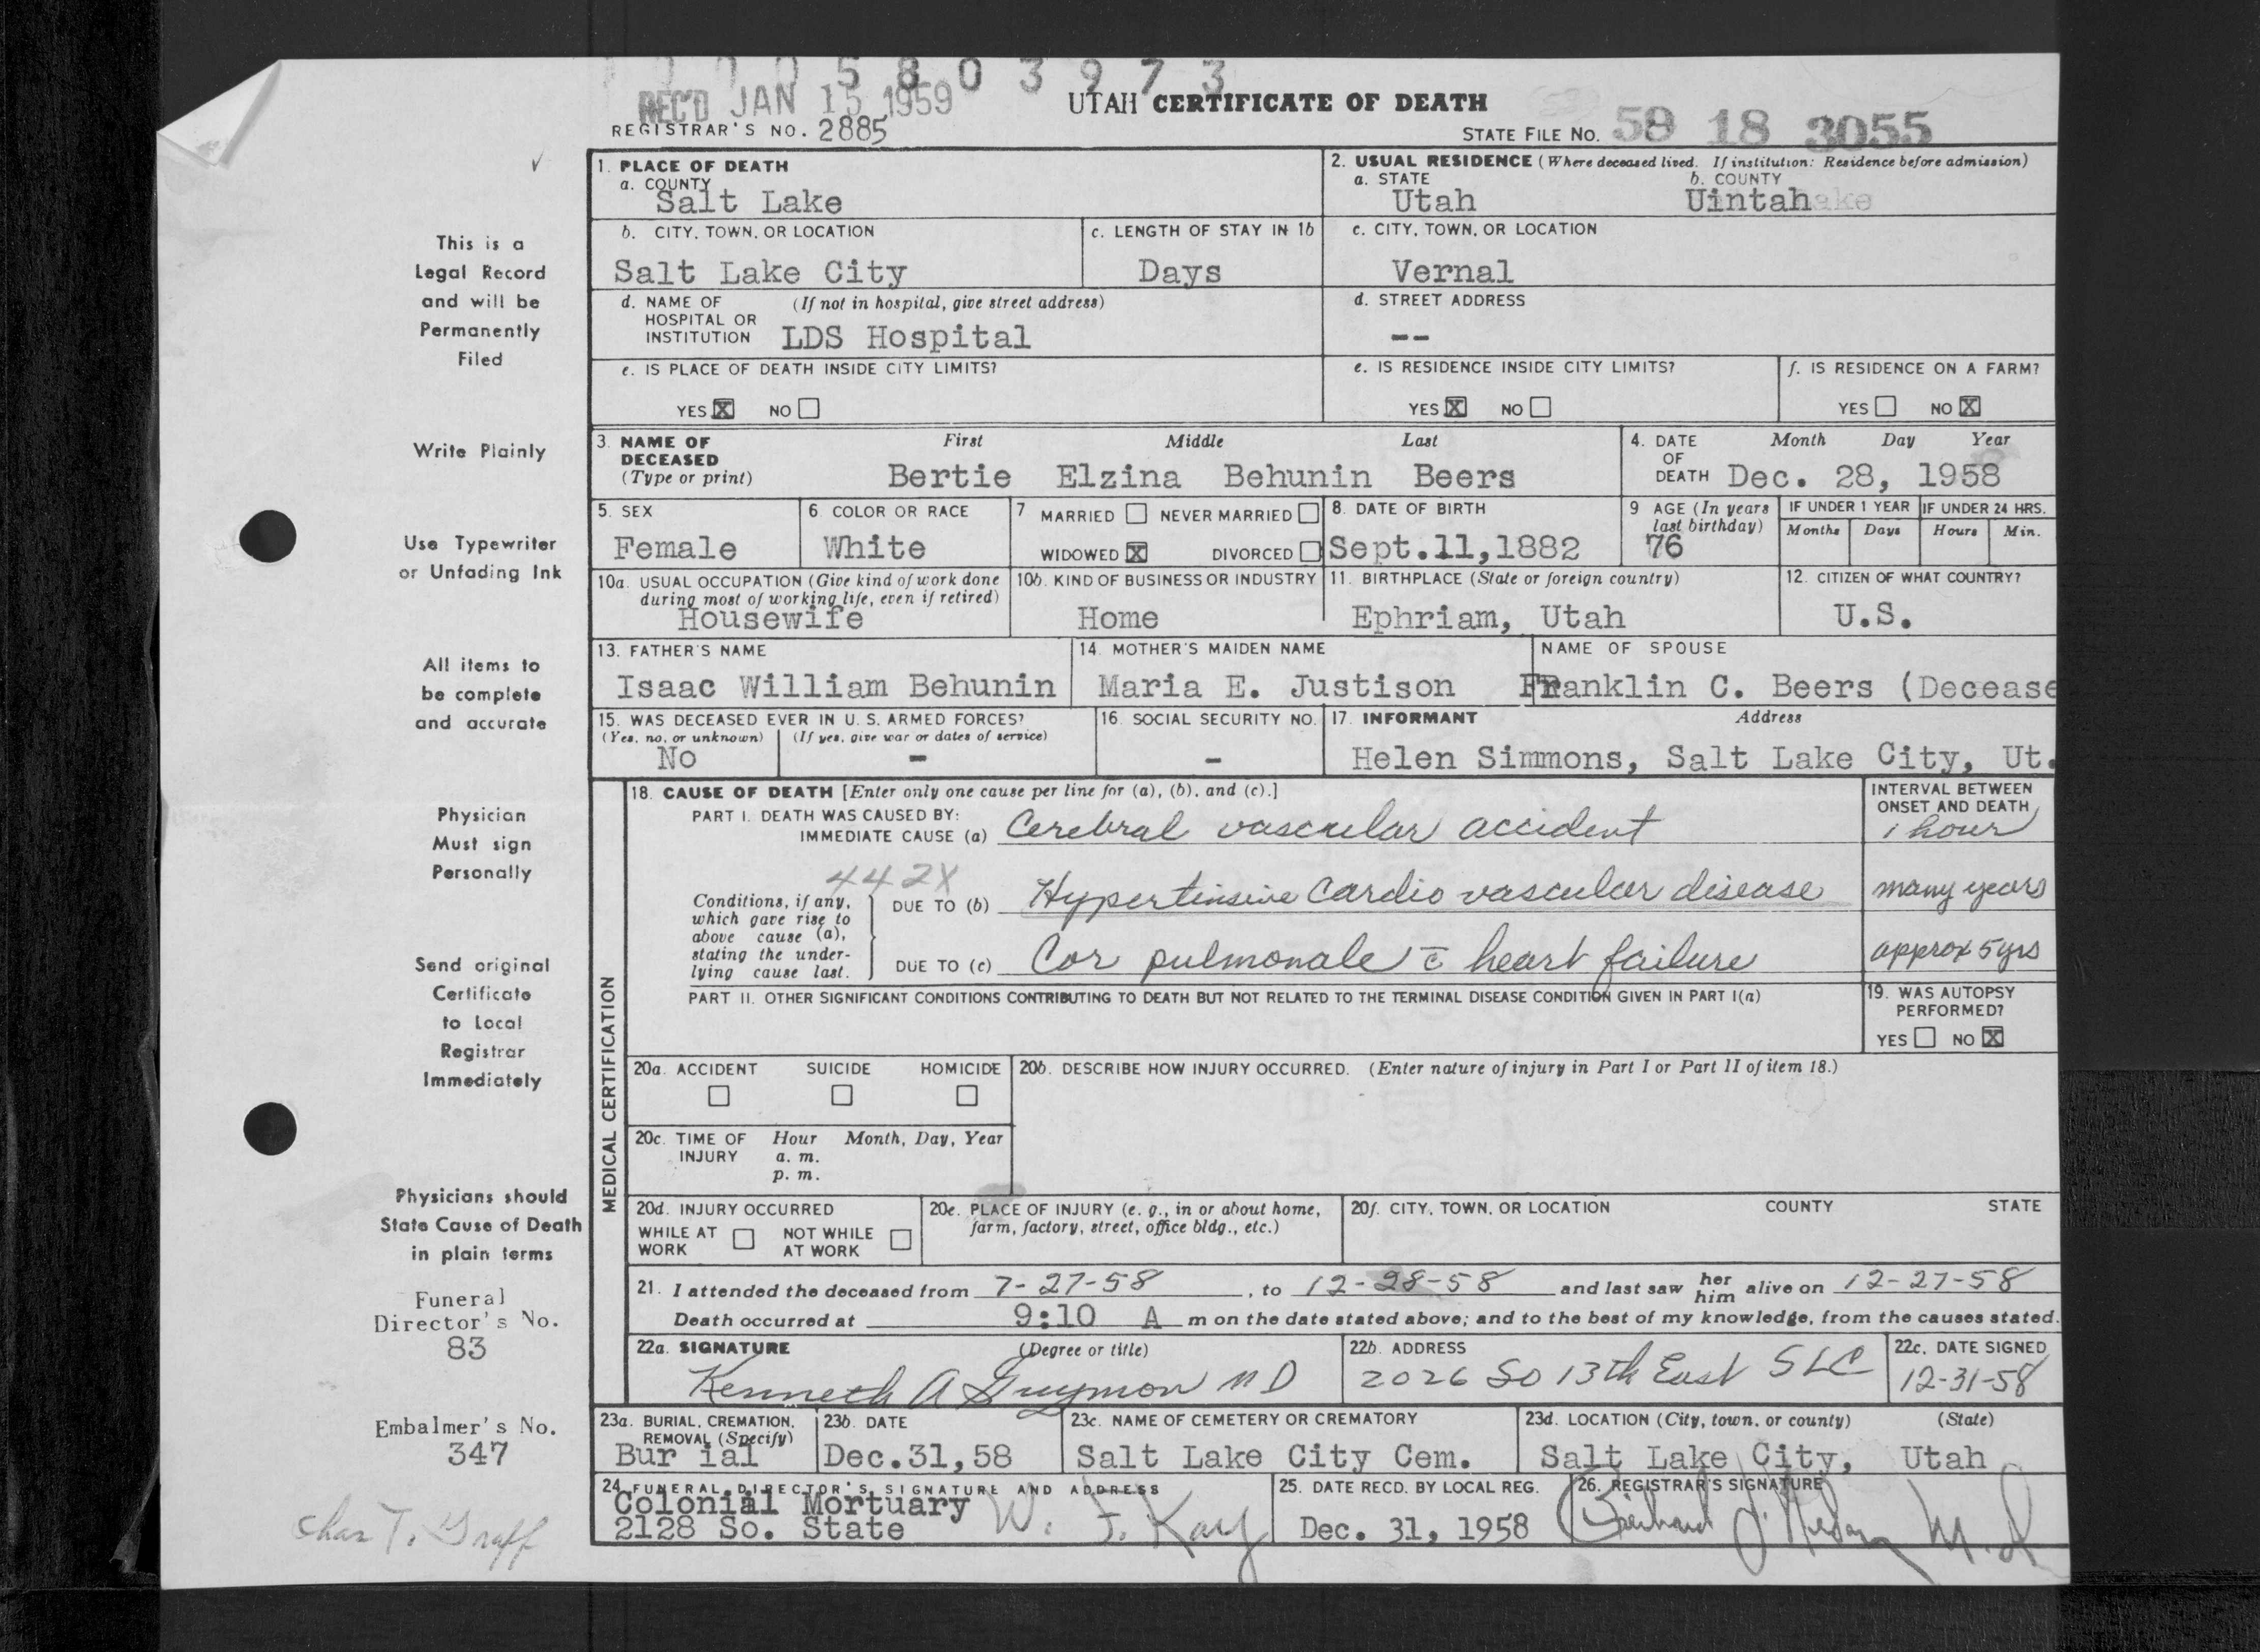 5 8 0 3 9 7 3
REC'D JAN 15 1959
UTAH CERTIFICATE OF DEATH
REGISTRAR'S NO. 2885
STATE FILE NO. 58 18 3055
1. PLACE OF DEATH
a. COUNTY
Salt Lake
2. USUAL RESIDENCE (Where deceased lived. If institution: Residence before admission)
a. STATE b. COUNTY
Utah Uintah
b. CITY, TOWN, OR LOCATION
Salt Lake City
c. LENGTH OF STAY IN 1b
Days
c. CITY, TOWN, OR LOCATION
Vernal
d. NAME OF (If not in hospital, give street address)
HOSPITAL OR
INSTITUTION LDS Hospital
d. STREET ADDRESS
--
e. IS PLACE OF DEATH INSIDE CITY LIMITS?
YES X NO
e. IS RESIDENCE INSIDE CITY LIMITS?
YES X NO
f. IS RESIDENCE ON A FARM?
YES NO X
3. NAME OF DECEASED (Type or print)
First Middle Last
Bertie Elzina Behunin Beers
4. DATE OF DEATH
Month Day Year
Dec. 28, 1958
5. SEX
Female
6. COLOR OR RACE
White
7 MARRIED NEVER MARRIED
WIDOWED X DIVORCED
8. DATE OF BIRTH
Sept.11,1882
9 AGE (In years last birthday)
76
IF UNDER 1 YEAR
Months Days
IF UNDER 24 HRS.
Hours Min.
10a. USUAL OCCUPATION (Give kind of work done
during most of working life, even if retired)
Housewife
10b. KIND OF BUSINESS OR INDUSTRY
Home
11. BIRTHPLACE (State or foreign country)
Ephriam, Utah
12. CITIZEN OF WHAT COUNTRY?
U.S.
13. FATHER'S NAME
Isaac William Behunin
14. MOTHER'S MAIDEN NAME
Maria E. Justison
NAME OF SPOUSE
Franklin C. Beers (Decease
15. WAS DECEASED EVER IN U. S. ARMED FORCES?
(Yes, no, or unknown) (If yes, give war or dates of service)
No -
16. SOCIAL SECURITY NO.
-
17. INFORMANT Address
Helen Simmons, Salt Lake City, Ut.
MEDICAL CERTIFICATION
18. CAUSE OF DEATH [Enter only one cause per line for (a), (b), and (c).]
INTERVAL BETWEEN
ONSET AND DEATH
PART I. DEATH WAS CAUSED BY:
IMMEDIATE CAUSE (a) Cerebral vascular accident
1 hour
442X
Conditions, if any,
which gave rise to
above cause (a),
stating the under-
lying cause last.
DUE TO (b) Hypertensive Cardio vascular disease
many years
DUE TO (c) Cor pulmonale c̄ heart failure
approx 5 yrs
PART II. OTHER SIGNIFICANT CONDITIONS CONTRIBUTING TO DEATH BUT NOT RELATED TO THE TERMINAL DISEASE CONDITION GIVEN IN PART I(a)
19. WAS AUTOPSY
PERFORMED?
YES NO X
20a. ACCIDENT SUICIDE HOMICIDE
20b. DESCRIBE HOW INJURY OCCURRED. (Enter nature of injury in Part I or Part II of item 18.)
20c. TIME OF INJURY
Hour Month, Day, Year
a. m.
p. m.
20d. INJURY OCCURRED
WHILE AT WORK NOT WHILE AT WORK
20e. PLACE OF INJURY (e. g., in or about home,
farm, factory, street, office bldg., etc.)
20f. CITY, TOWN, OR LOCATION COUNTY STATE
21. I attended the deceased from 7-27-58, to 12-28-58 and last saw her him alive on 12-27-58
Death occurred at 9:10 A m on the date stated above; and to the best of my knowledge, from the causes stated.
22a. SIGNATURE (Degree or title)
Kenneth A Guymon MD
22b. ADDRESS
2026 So 13th East SLC
22c. DATE SIGNED
12-31-58
23a. BURIAL, CREMATION,
REMOVAL (Specify)
Bur ial
23b. DATE
Dec.31,58
23c. NAME OF CEMETERY OR CREMATORY
Salt Lake City Cem.
23d. LOCATION (City, town, or county) (State)
Salt Lake City, Utah
24. FUNERAL DIRECTOR'S SIGNATURE AND ADDRESS
Colonial Mortuary
2128 So. State
W. J. Kay
25. DATE RECD. BY LOCAL REG.
Dec. 31, 1958
26. REGISTRAR'S SIGNATURE
M.D.
This is a
Legal Record
and will be
Permanently
Filed
Write Plainly
Use Typewriter
or Unfading Ink
All items to
be complete
and accurate
Physician
Must sign
Personally
Send original
Certificate
to Local
Registrar
Immediately
Physicians should
State Cause of Death
in plain terms
Funeral
Director's No.
83
Embalmer's No.
347
Chas T. Graff